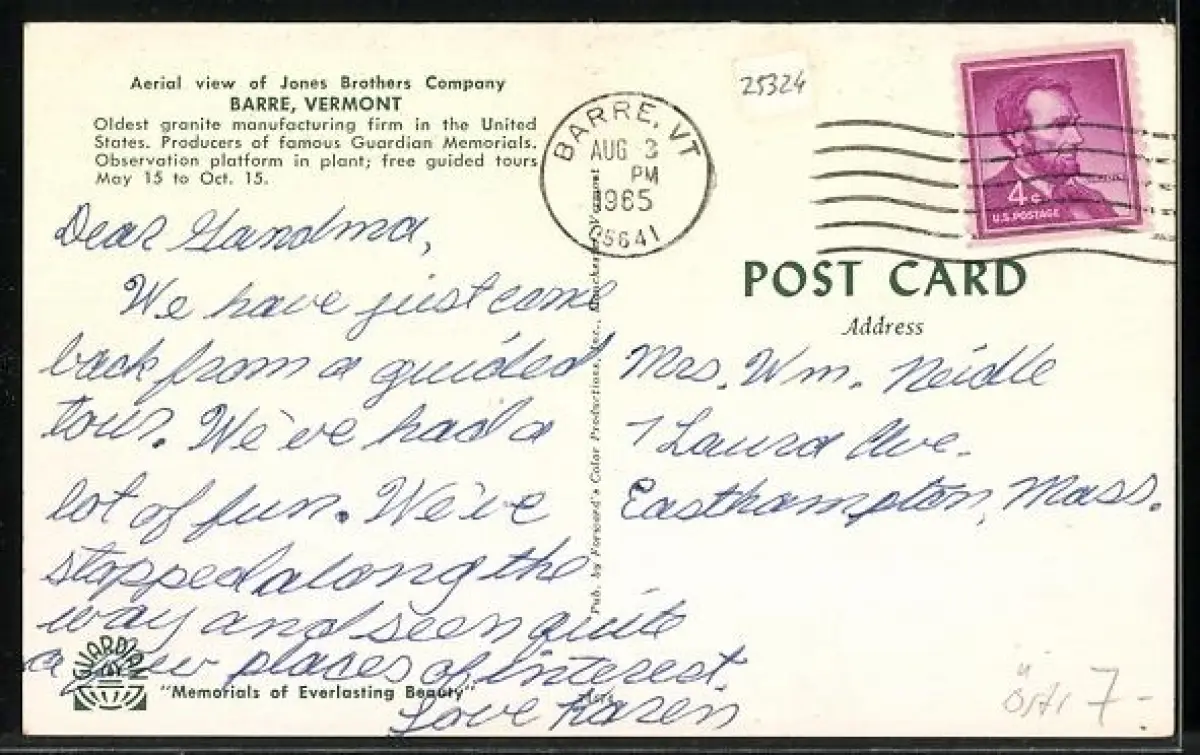 Aerial view of Jones Brothers Company
BARRE, VERMONT
Oldest granite manufacturing firm in the United
States. Producers of famous Guardian Memorials.
Observation platform in plant; free guided tours
May 15 to Oct. 15.
Dear Grandma,
We have just come
back from a guided
tour. We've had a
lot of fun. We've
stopped along the
way and seen quite
a few places of interest.
Love Karen
GUARDIAN
"Memorials of Everlasting Beauty"
Pub. by Forward's Color Productions, Inc., Manchester, Vermont
25324
BARRE, VT
AUG 3
PM
1965
05641
4¢
U.S. POSTAGE
POST CARD
Address
Mrs. Wm. Neidle
7 Laura Ave.
Easthampton, Mass.
7-